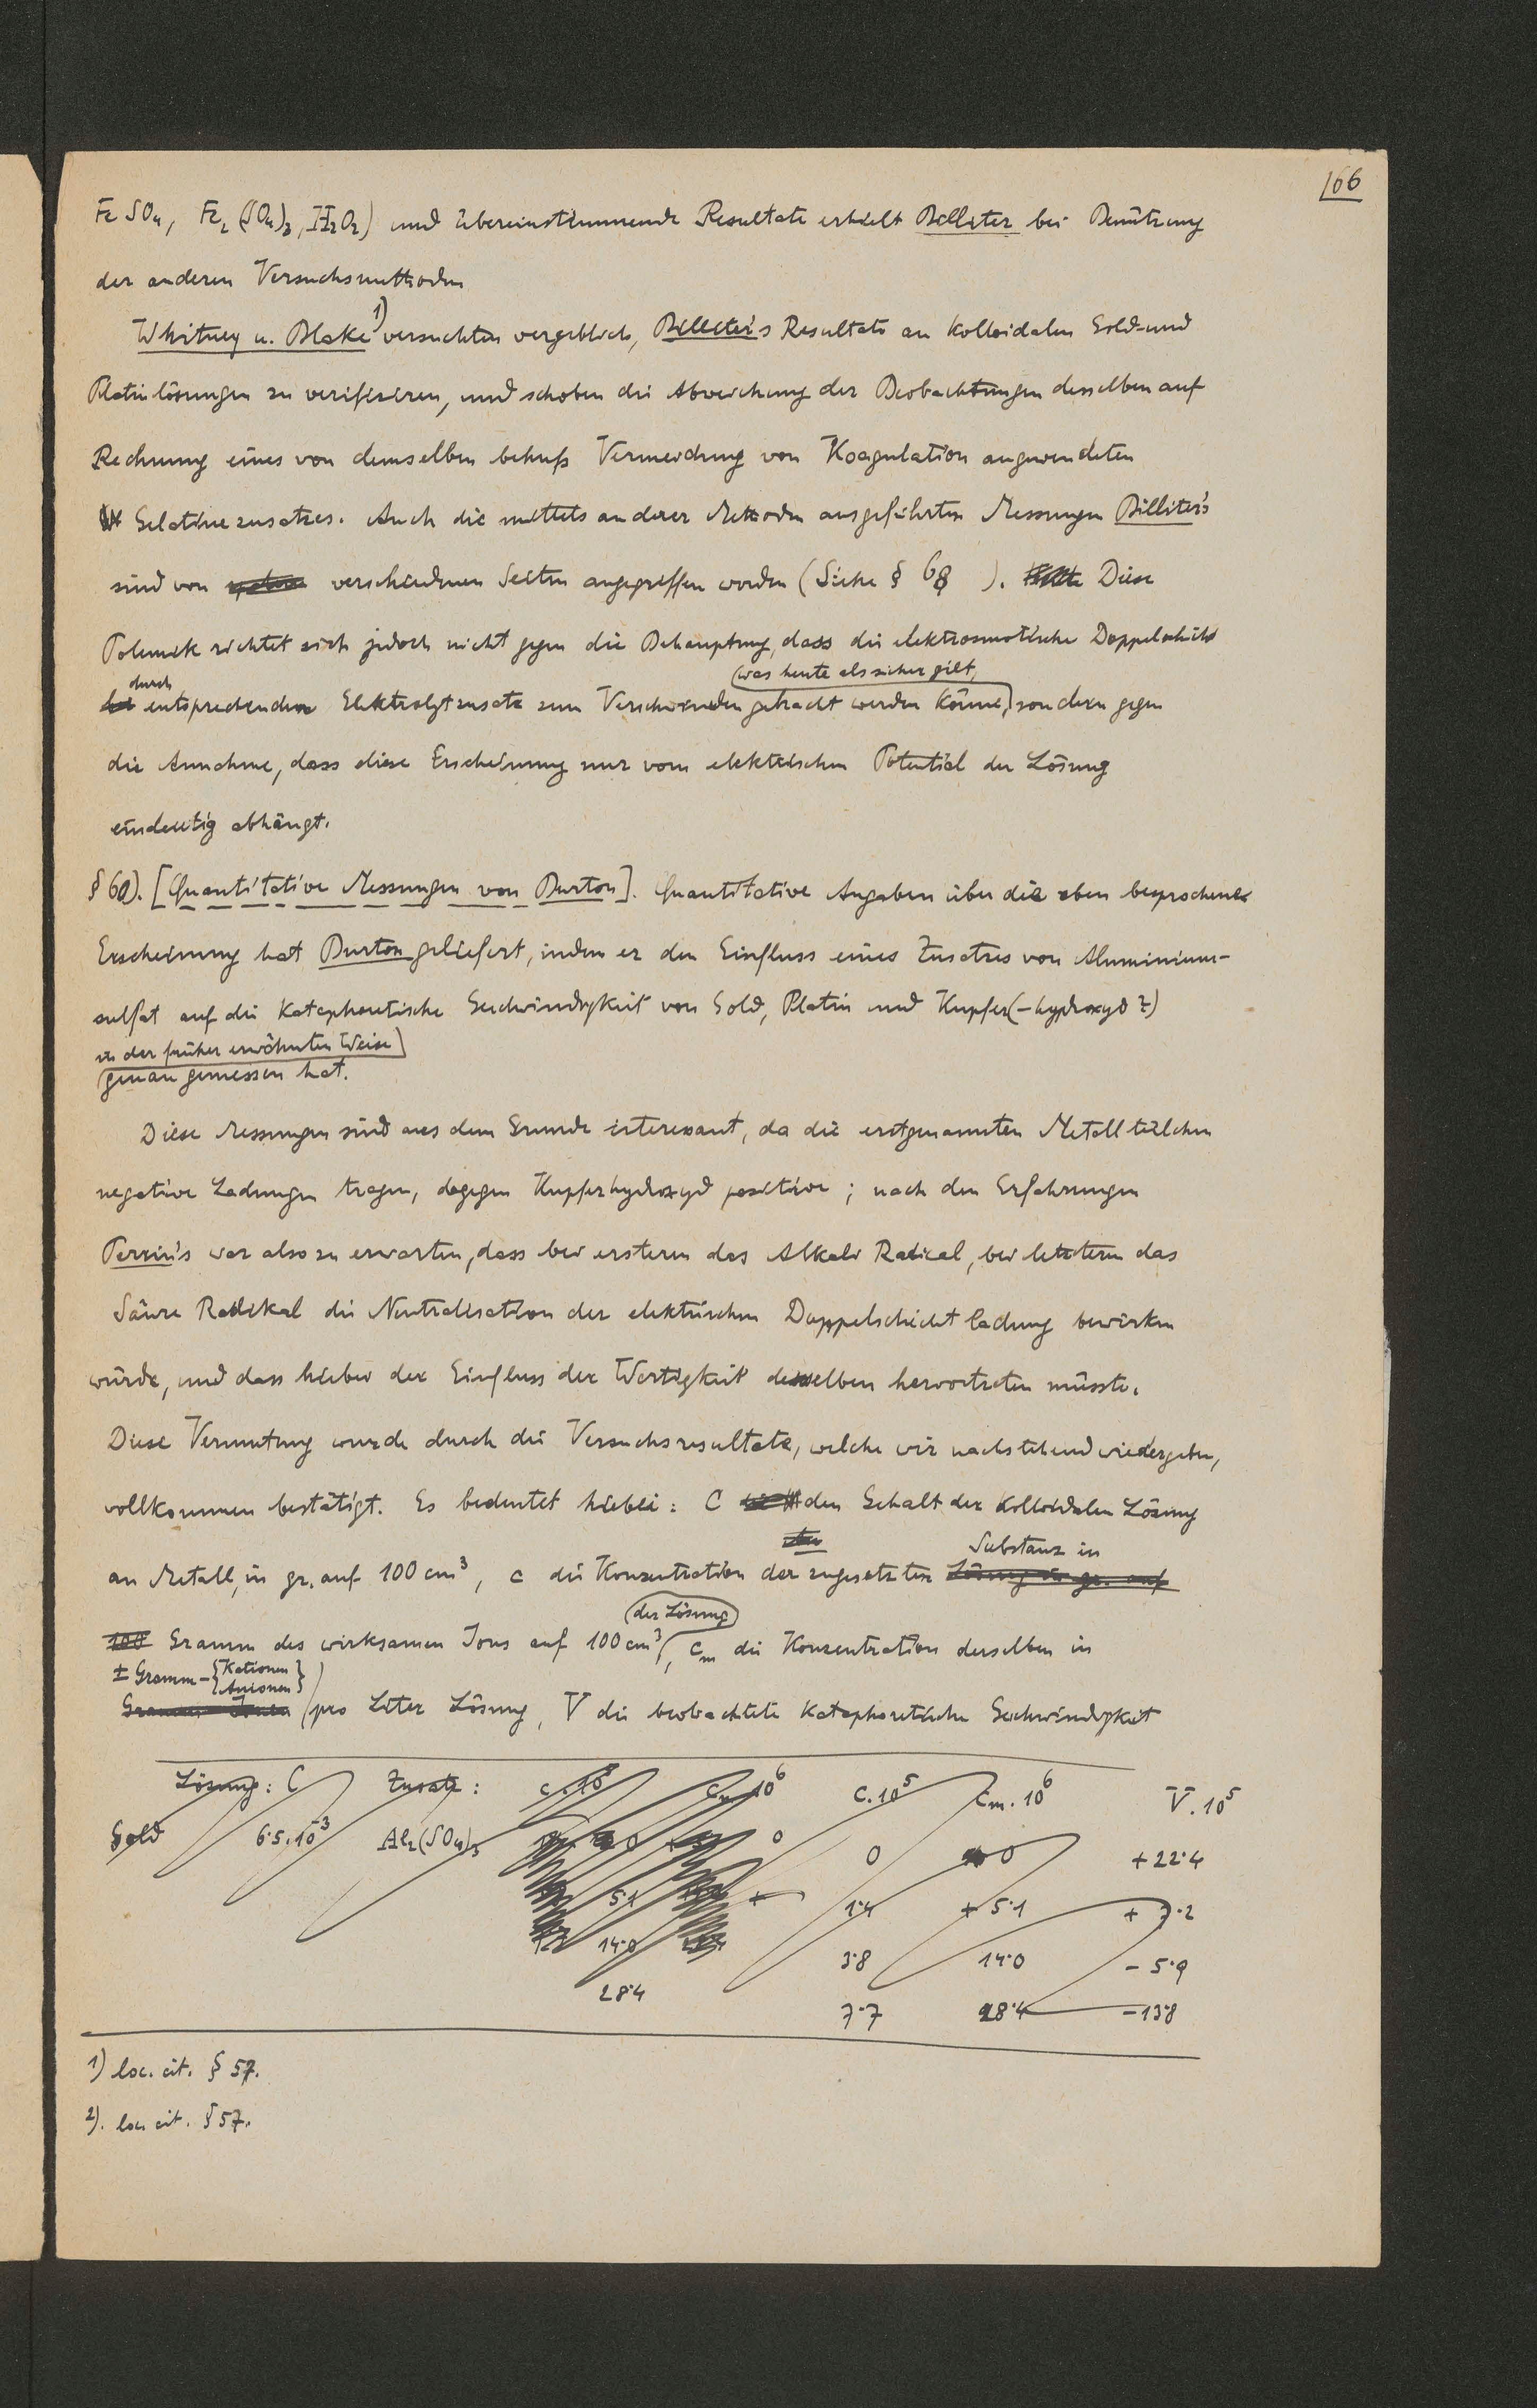 166
FeSO₄, Fe₂(SO₄)₃, H₂O₂) und übereinstimmende Resultate erhielt Billiter bei Benützung
der anderen Versuchsmethoden
Whitney u. Blake 1) versuchten vergeblich, Billiter's Resultate an kolloidalen Gold- und
Platinlösungen zu verifiziren, und schoben die Abweichung der Beobachtungen desselben auf
Rechnung eines von demselben behufs Vermeidung von Koagulation angewendeten
Gelatinezusatzes. Auch die mittels anderer Methoden ausgeführten Messungen Billiter's
sind von verschiedenen Seiten angegriffen worden (Siehe § 68 ). Diese
Polemik richtet sich jedoch nicht gegen die Behauptung, dass die elektrosmotische Doppelschicht
(was heute als sicher gilt,
durch
entsprechenden Elektrolytzusatz zum Verschwinden gebracht werden könne, sondern gegen
die Annahme, dass diese Erscheinung nur vom elektrischen Potential der Lösung
eindeutig abhängt.
§ 60). [Quantitative Messungen von Burton]. Quantitative Angaben über die eben besprochene
Erscheinung hat Burton geliefert, indem er den Einfluss eines Zusatzes von Aluminium-
sulfat auf die kataphoretische Geschwindigkeit von Gold, Platin und Kupfer(-hydroxyd?)
in der früher erwähnten Weise
genau gemessen hat.
Diese Messungen sind aus dem Grunde interessant, da die erstgenannten Metallteilchen
negative Ladungen tragen, dagegen Kupferhydroxyd positive; nach den Erfahrungen
Perrin's war also zu erwarten, dass bei ersteren das Alkali Radical, bei letzteren das
Säure Radikal die Neutralisation der elektrischen Doppelschichtladung bewirken
würde, und dass hiebei der Einfluss der Wertigkeit desselben hervortreten müsste.
Diese Vermutung wurde durch die Versuchsresultate, welche wir nachstehend wiedergeben,
vollkommen bestätigt. Es bedeutet hiebei: C den Gehalt der kolloidalen Lösung
Substanz in
an Metall, in gr. auf 100 cm³, c die Konzentration der zugesetzten Lösung in gr. auf
(der Lösung)
100 Gramm des wirksamen Ions auf 100 cm³, cₘ die Konzentration derselben in
± Gramm-{Kationen
Anionen}
Gramm Ionen pro Liter Lösung, V die beobachtete kataphoretische Geschwindigkeit
Lösung: C Zusatz: c.10⁵ cₘ.10⁶ c.10⁵ cₘ.10⁶ V.10⁵
Gold 6·5.10³ Al₂(SO₄)₃ 0 0
0 0 +22·4
5·1 +
1·4 + 5·1 + 7·2
14·0
3·8 14·0 - 5·9
28·4
7·7 28·4 -13·8
1) loc. cit. § 57.
2). loc. cit. § 57.